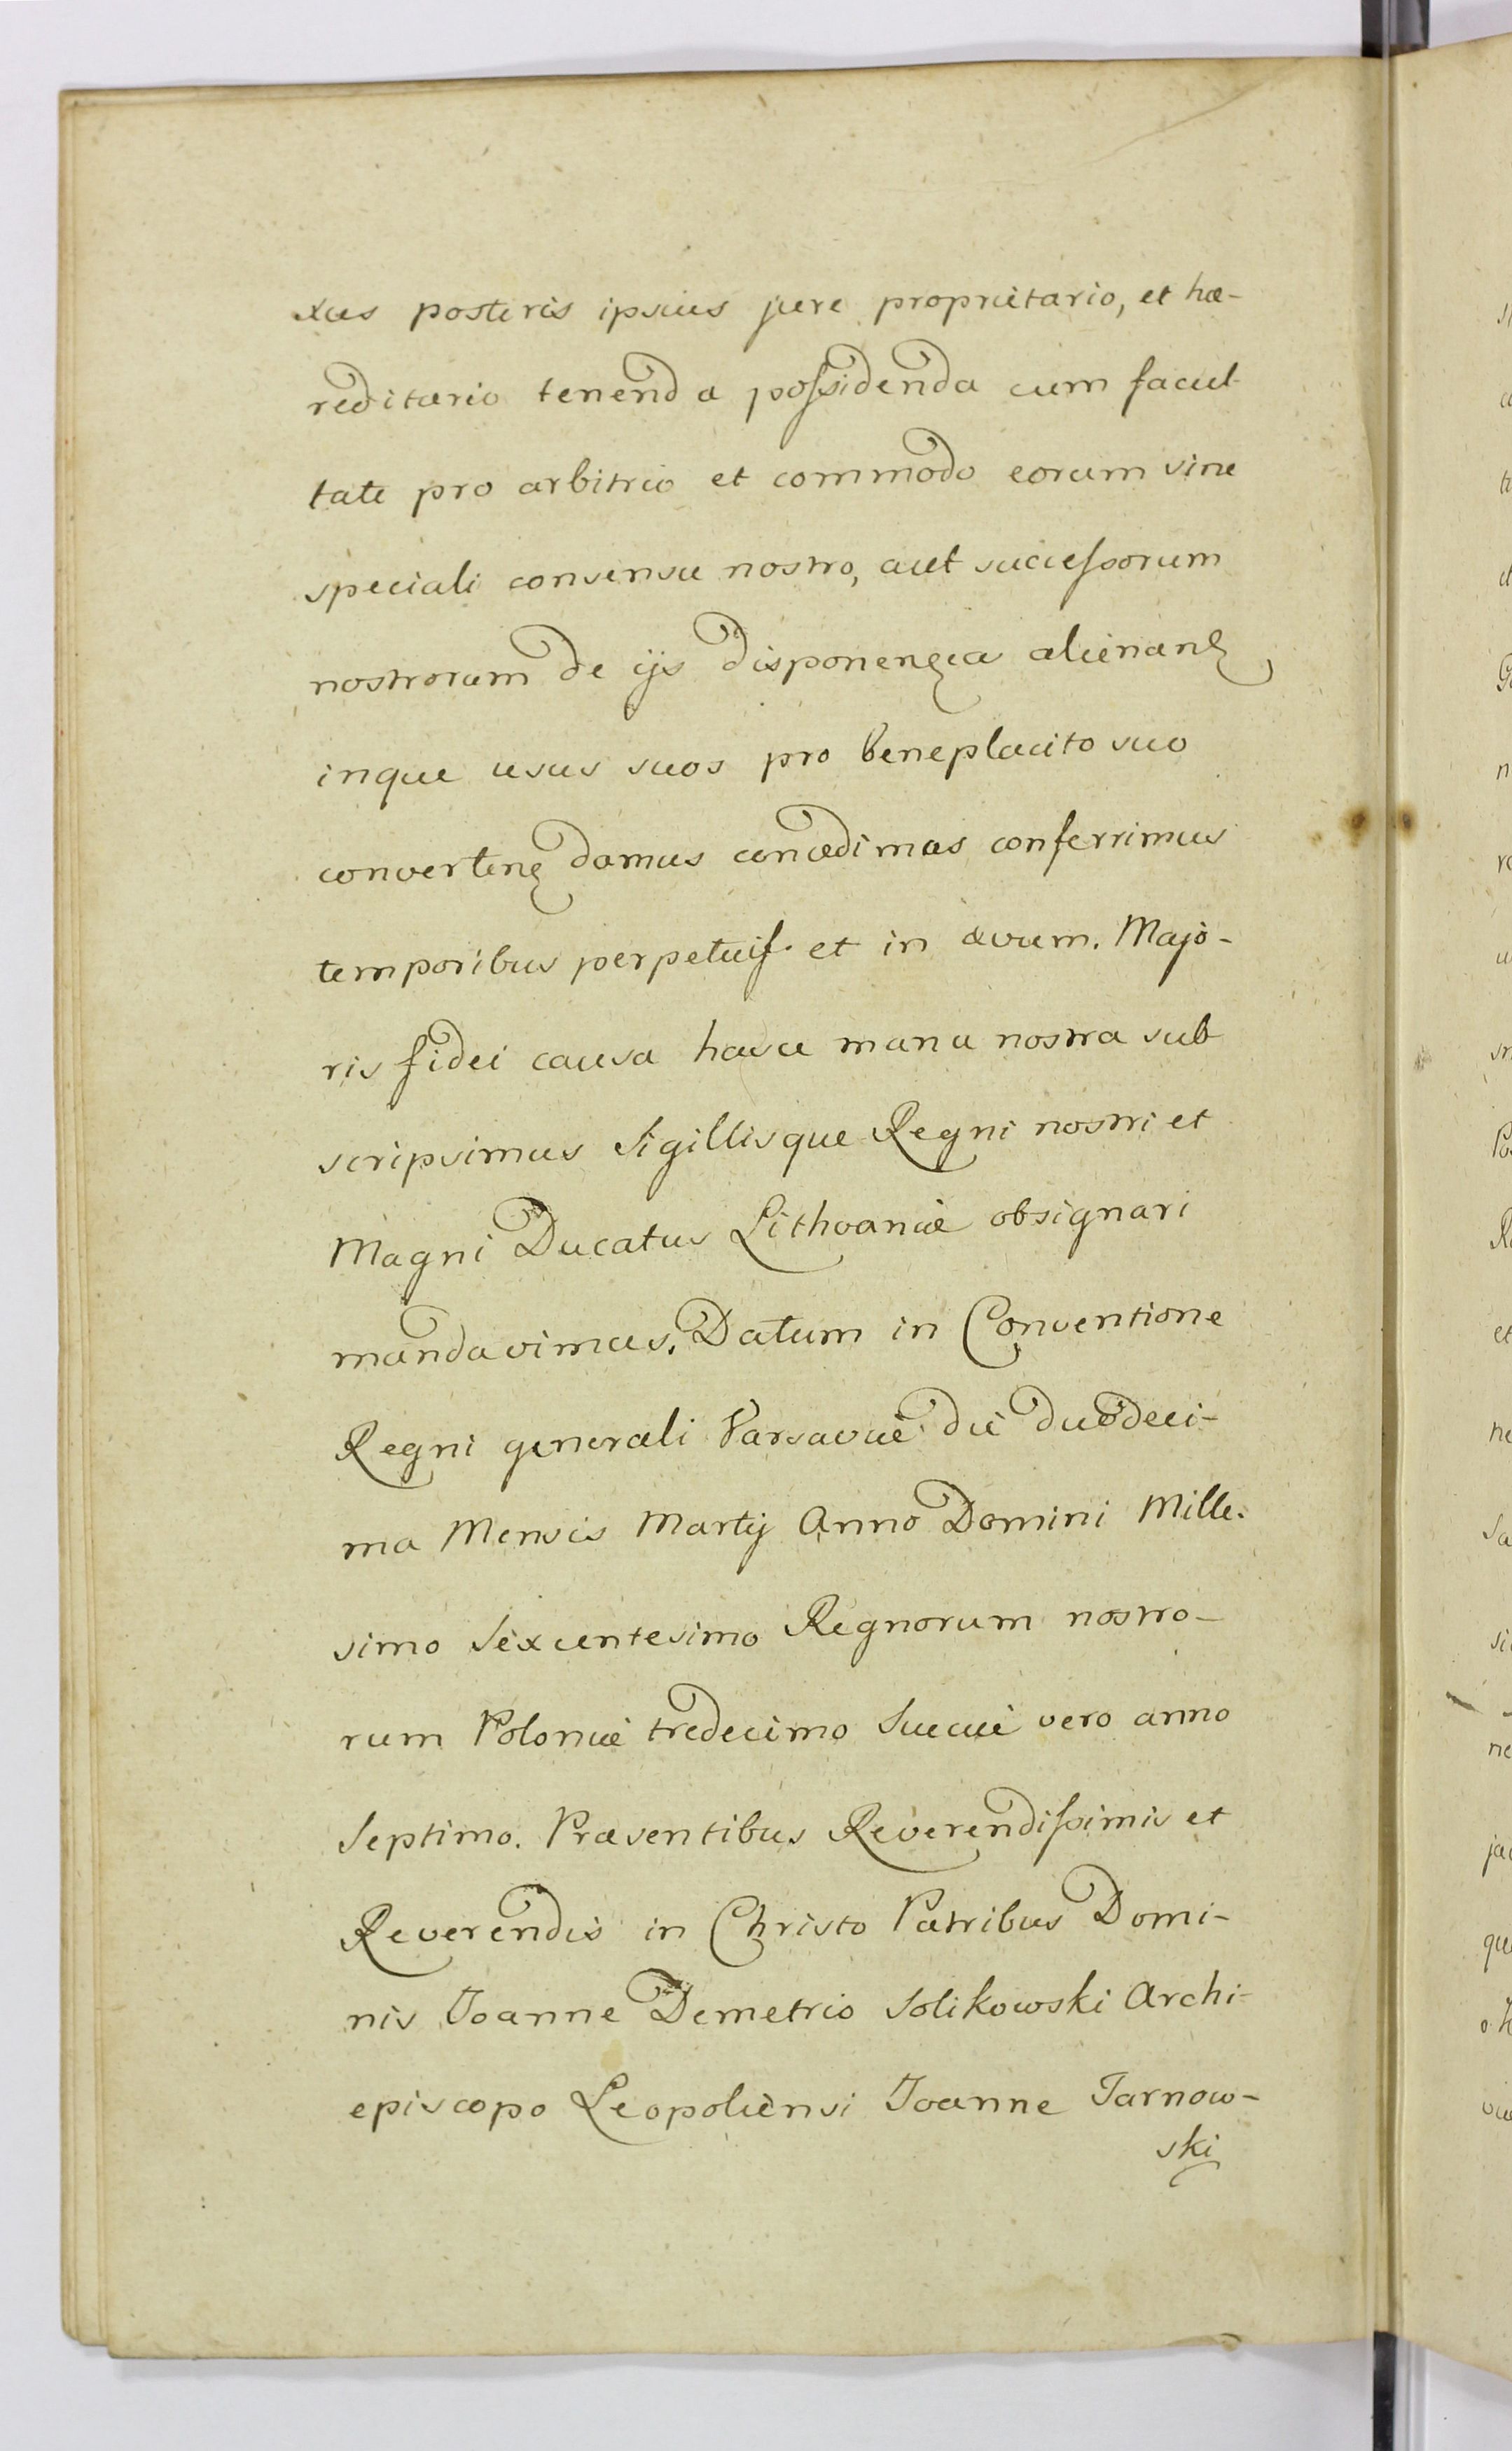 xus posteris ipsius jure proprietario, et hæ-
reditario tenenda possidenda cum facul-
tate pro arbitrio et commodo eorum sine
speciali consensu nostro, aut successorum
nostrorum de ijs disponen alienan
inque usus suos pro beneplacito suo
converten damus concedimus conferrimus
temporibus perpetuis et in ævum. Majo-
ris fidei causa hasce manu nostra sub
scripsimus Sigillisque Regni nostri et
Magni Ducatus Lithvaniæ obsignari
mandavimus. Datum in Conventione
Regni generali Varsaviæ die duodeci-
ma Mensis Martij Anno Domini Mille-
simo Sexcentesimo Regnorum nostro-
rum Poloniæ tredecimo Sueciæ vero anno
Septimo. Præsentibus Reverendissimis et
Reverendis in Christo Patribus Domi-
nis Joanne Demetrio Solikowski Archi-
episcopo Leopoliensi Joanne Tarnow-
ski